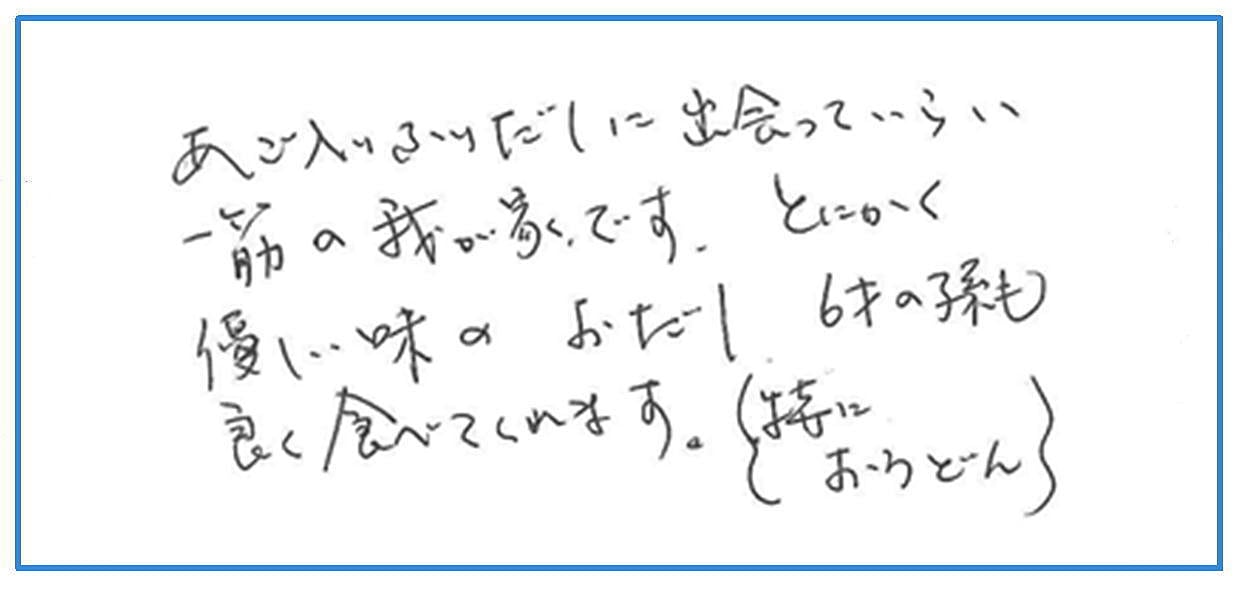 あご入りふりだしに出会っていらい
一筋の我が家です. とにかく
優しい味の おだし 6才の孫も
良く食べてくれます。{特に
おうどん}